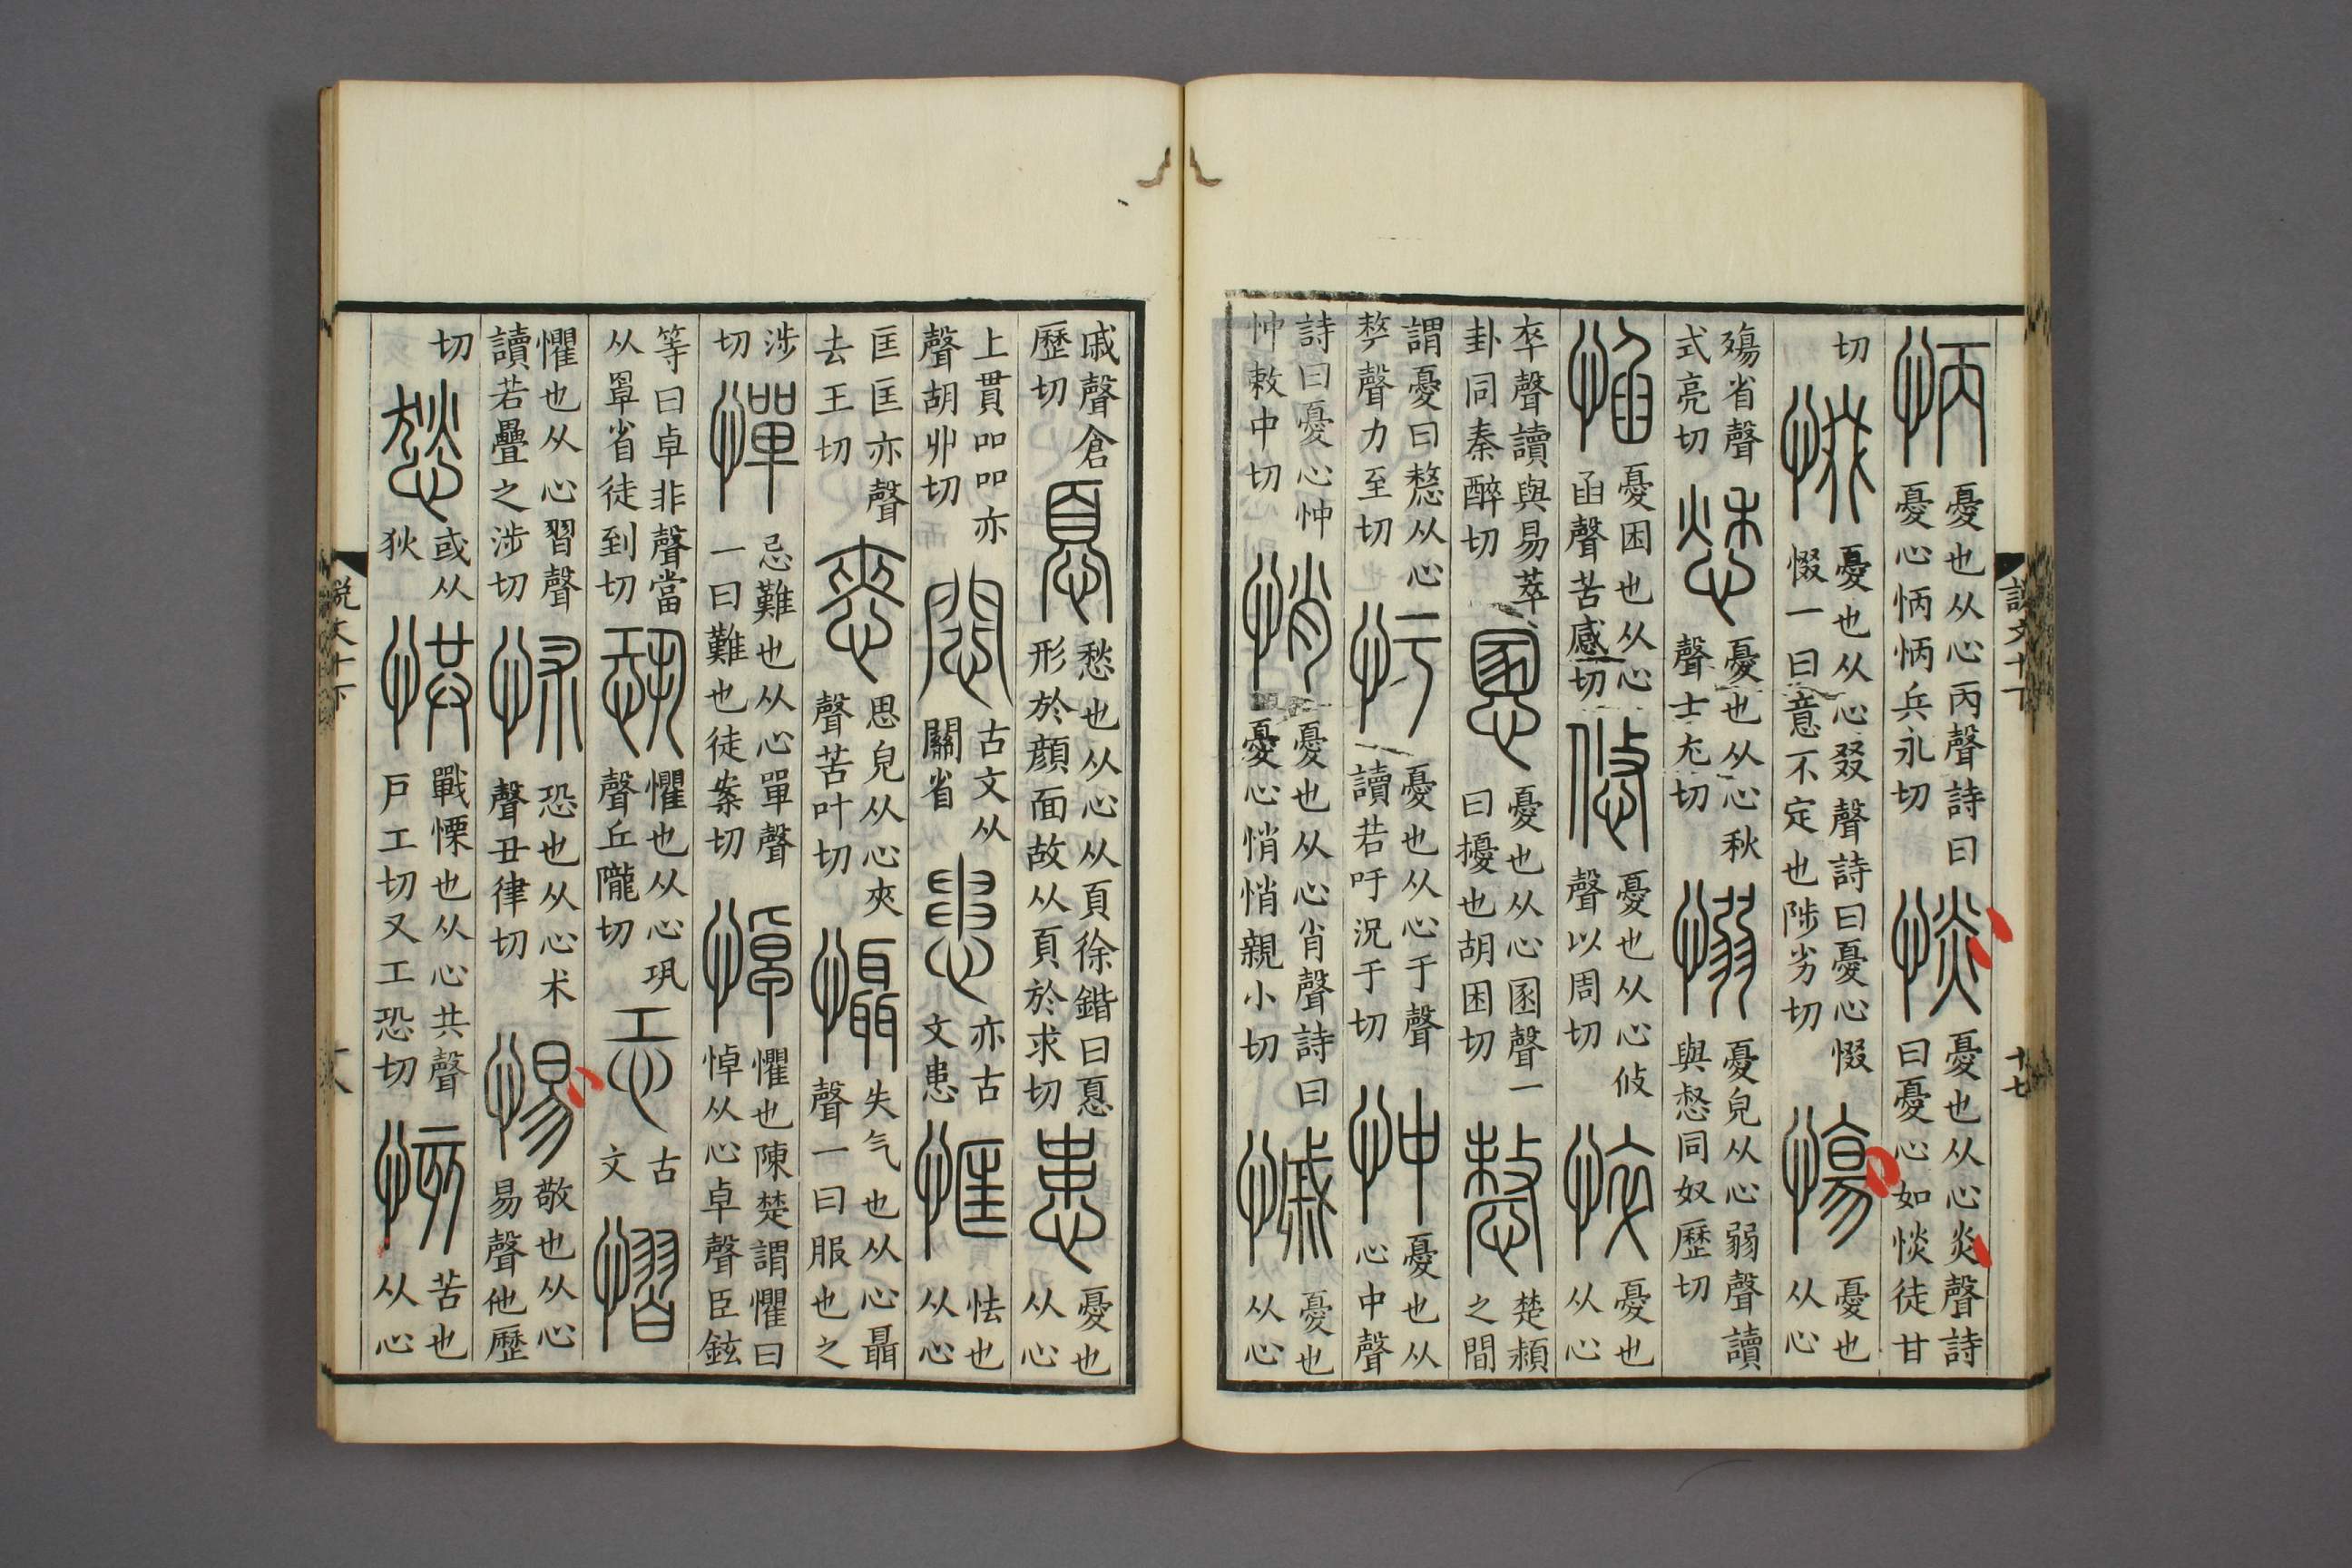 怲憂也从心丙聲詩曰憂心怲怲兵永切惔憂也从心炎聲詩曰憂心如惔徒甘
切惙憂也从心叕聲詩曰憂心惙惙一曰意不定也陟劣切慯憂也从心
殤省聲式亮切愁憂也从心秋聲士尤切愵憂皃从心弱聲讀與惄同奴歷切
惂憂困也从心臽聲苦感切悠憂也从心攸聲以周切悴憂也从心
卒聲讀與易萃卦同秦醉切慁憂也从心圂聲一曰擾也胡困切慗楚潁之間
謂憂曰慗从心𠩺聲力至切𢖳憂也从心于聲讀若吁況于切忡憂也从心中聲
詩曰憂心忡忡敕中切悄憂也从心肖聲詩曰憂心悄悄親小切慽憂也从心
說文十下
十七
戚聲倉歷切𢝊愁也从心从頁徐鍇曰𢝊形於顏面故从頁於求切患憂也从心
上貫吅吅亦聲胡丱切𢤝古文从關省𢠵亦古文患恇怯也从心
匡匡亦聲去王切㥦思皃从心夾聲苦叶切懾失气也从心聶聲一曰服也之
涉切憚忌難也从心單聲一曰難也徒案切悼懼也陳楚謂懼曰悼从心卓聲臣鉉
等曰卓非聲當从罩省徒到切恐懼也从心巩聲丘隴切㤟古文慴
懼也从心習聲讀若疊之涉切怵恐也从心朮聲丑律切惕敬也从心易聲他歷
切悐或从狄㤨戰慄也从心共聲戶工切又工恐切㤥苦也从心
說文十下
十八